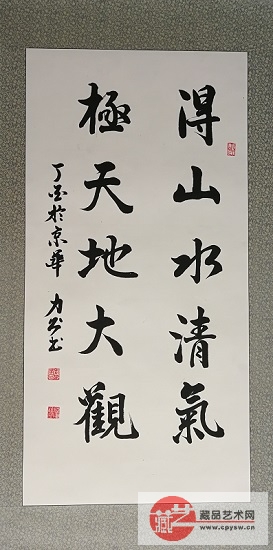 得山水清氣
極天地大觀
丁酉於京華 力公书
藏品艺术网
www.cpysw.cn